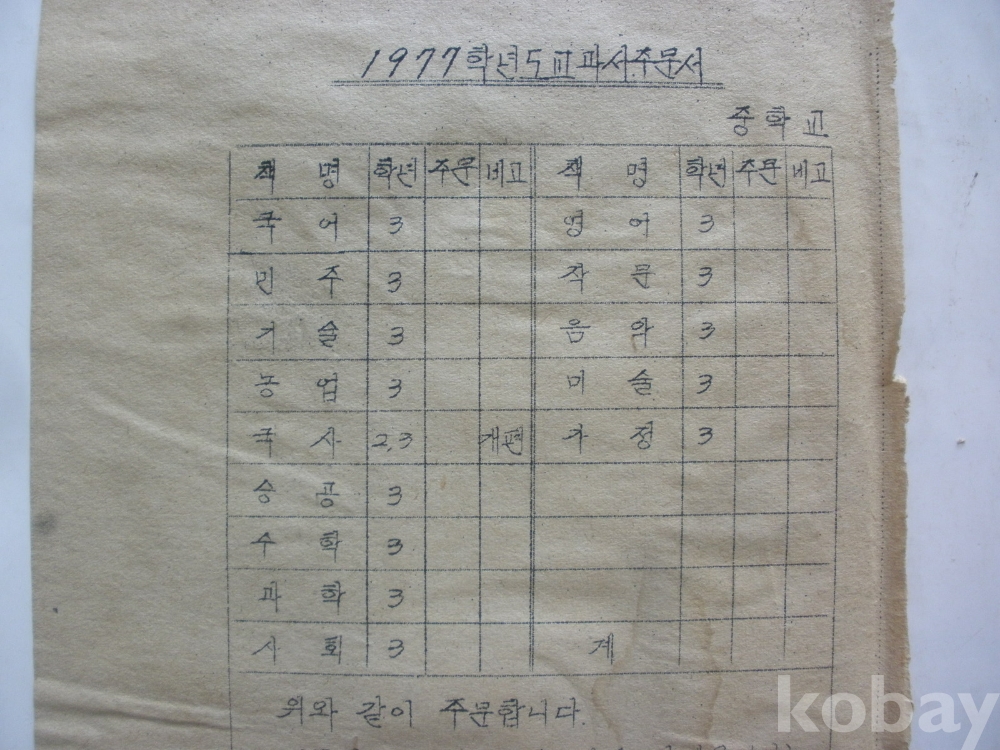 1977학년도교과서주문서
중학교
책명 학년 주문 비고 책명 학년 주문 비고
국어 3 영어 3
민주 3 작문 3
기술 3 음악 3
농업 3 미술 3
국사 2,3 개편 가정 3
승공 3
수학 3
과학 3
사회 3 계
위와 같이 주문합니다.
kobay